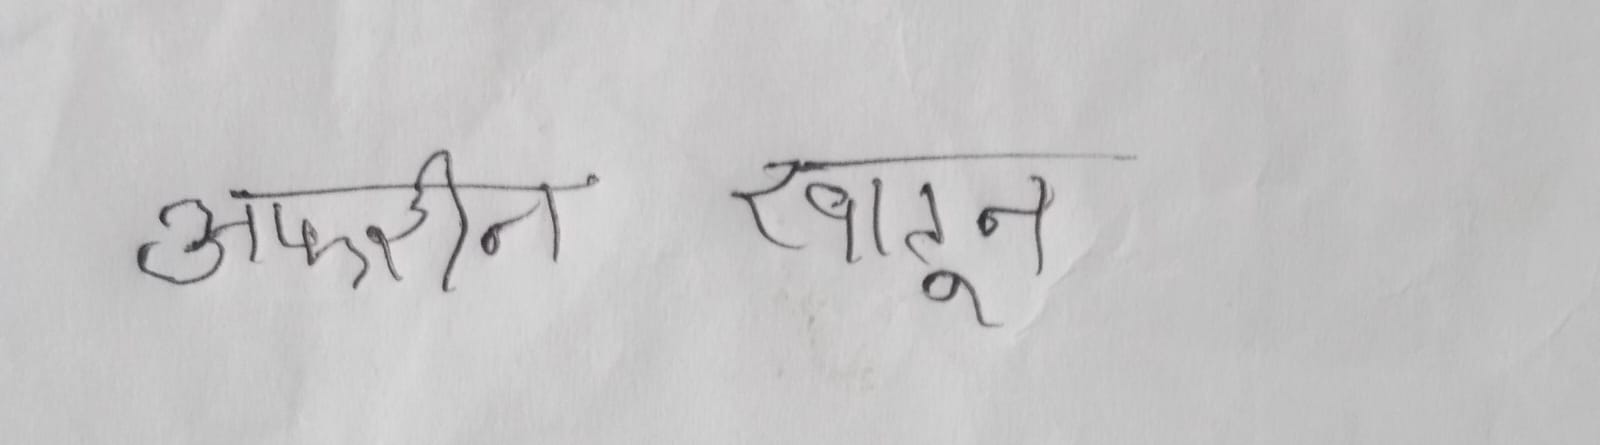 अफरीन खातून